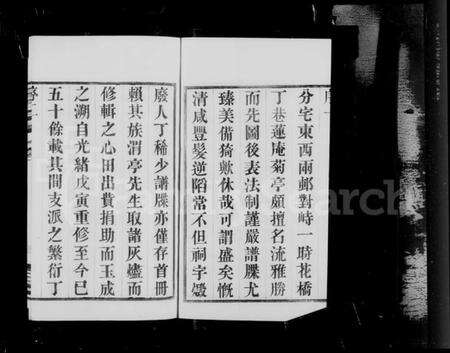 分宅東西兩邨對峙一時花橋
丁巷蓮庵菊亭頗擅名流雅勝
而先圖後表法制謹嚴譜牒尤
臻美備猗歟休哉可謂盛矣慨
清咸豐髮逆陷常不但祠宇燬
廢人丁稀少譜牒亦僅存首冊
賴其族渭亭先生取諸灰燼而
修輯之心田出費捐助而玉成
之溯自光緒戊寅重修至今已
五十餘載其間支派之繁衍丁